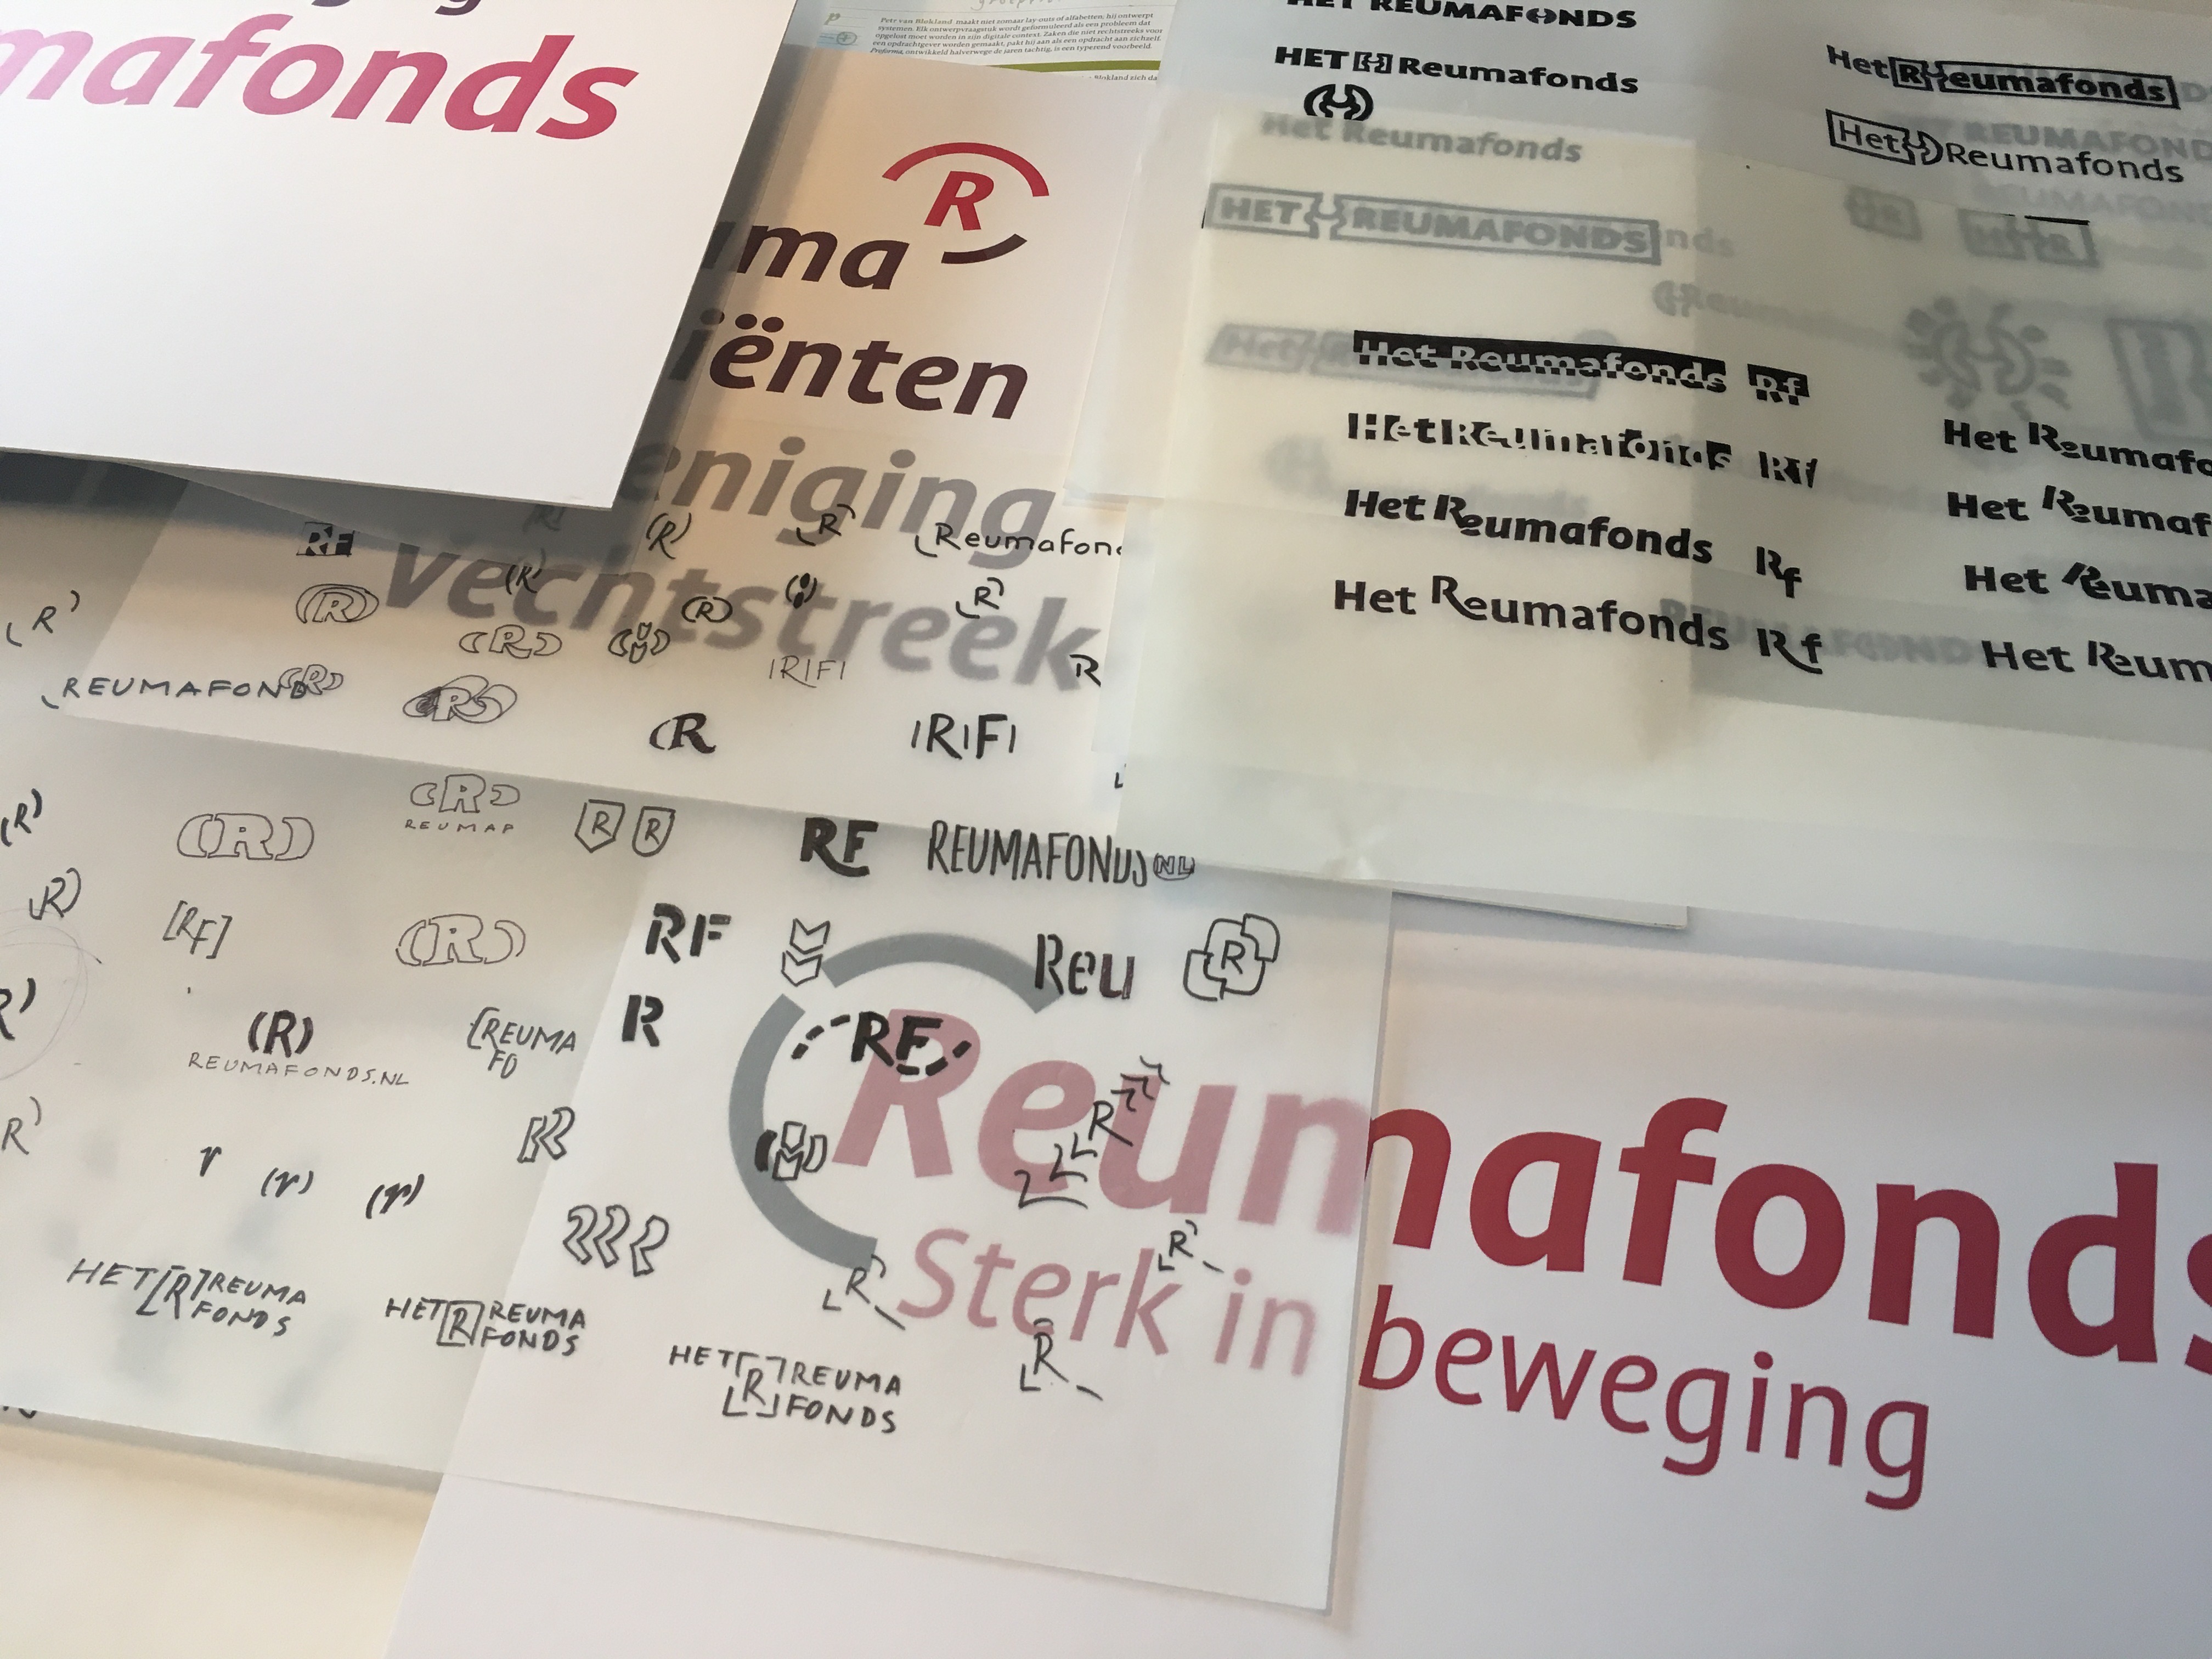 mafonds
Petr van Blokland maakt niet zomaar lay-outs of alfabetten; hij ontwerpt
systemen. Elk ontwerpvraagstuk wordt geformuleerd als een probleem dat
opgelost moet worden in zijn digitale context. Zaken die niet rechtstreeks voor
een opdrachtgever worden gemaakt, pakt hij aan als een opdracht aan zichzelf.
Preforma, ontwikkeld halverwege de jaren tachtig, is een typerend voorbeeld.
Blokland zich da
R
ma
iënten
eniging
Vechtstreek
HET REUMAFONDS
HET H Reumafonds
Het Reumafonds
HET REUMAFONDS
nds
Het Reumafonds
Het Reumafonds
Reumafonds
Het Reumafonds Rf
Het Reumafonds Rf
Het Reumafonds Rf
Het Reumafonds Rf
Het Reumafo
Het Reumaf
Het Reuma
Het Reum
RF
(R)
R
Reumafon
(R)
(R)
(R)
R
(R)
(R)
IRIFI
R
REUMAFOND
(R)
(R)
(R
IRIFI
(R)
(R)
(R)
REUMAF
R R
RF
REUMAFONDS NL
R)
[RF]
(R)
RF
Reu
R
(R)
REUMAFONDS.NL
[REUMA
FO
R
RF
R)
r (r) (r)
R
R
R
R
HET [R] REUMA
FONDS
HET [R] REUMA
FONDS
HET [R] REUMA
FONDS
Reumafonds
Sterk in beweging